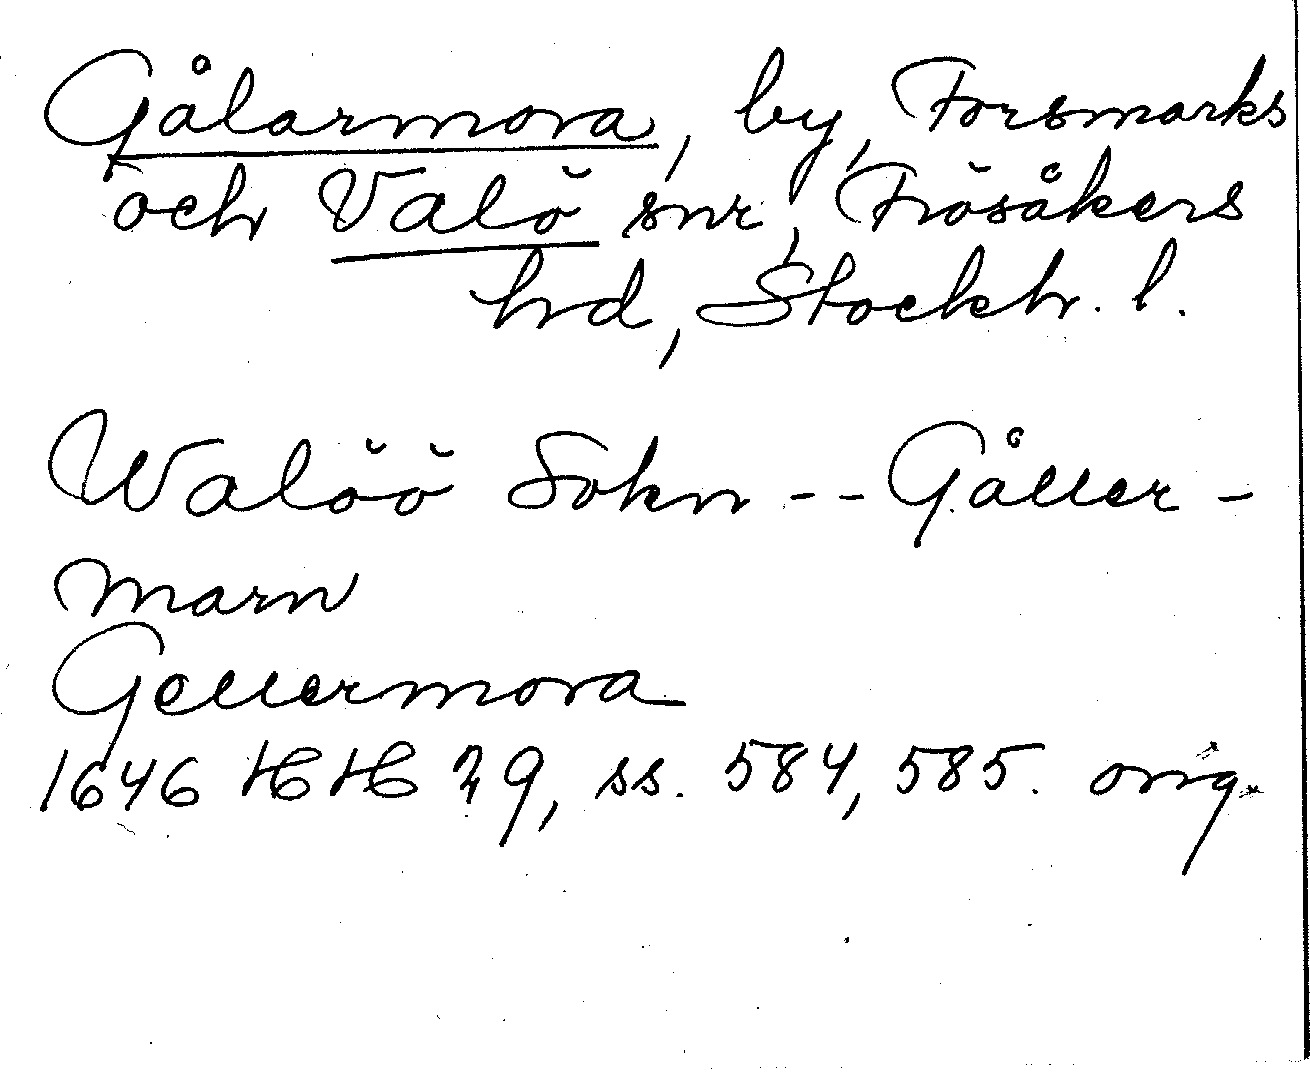 Gålarmora, by, Forsmarks
och Valö snr, Frösåkers
hd, Stockh. l.
Walöö Sokn -- Gåller-
marn
Gellermora
1646 HH 29, ss. 584, 585. orig.